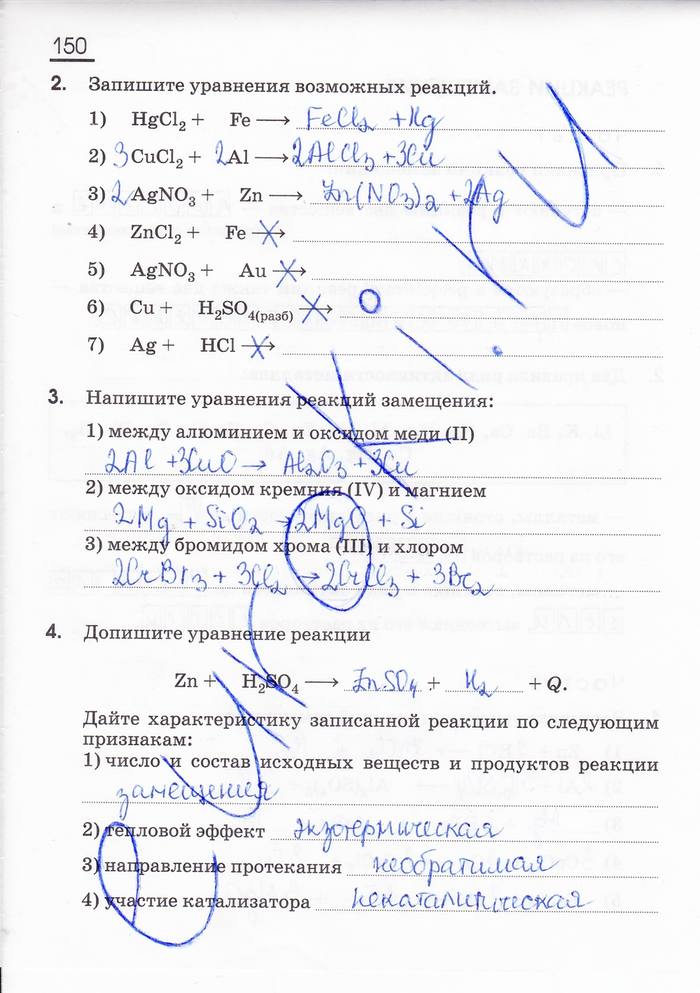 150
2. Запишите уравнения возможных реакций.
1) HgCl₂ + Fe ⟶ FeCl₂ + Hg
2) 3CuCl₂ + 2Al ⟶ 2AlCl₃ + 3Cu
3) 2AgNO₃ + Zn ⟶ Zn(NO₃)₂ + 2Ag
4) ZnCl₂ + Fe ⟶
5) AgNO₃ + Au ⟶
6) Cu + H₂SO₄(разб) ⟶
7) Ag + HCl ⟶
3. Напишите уравнения реакций замещения:
1) между алюминием и оксидом меди (II)
2Al + 3CuO → Al₂O₃ + 3Cu
2) между оксидом кремния (IV) и магнием
2Mg + SiO₂ → 2MgO + Si
3) между бромидом хрома (III) и хлором
2CrBr₃ + 3Cl₂ → 2CrCl₃ + 3Br₂
4. Допишите уравнение реакции
Zn + H₂SO₄ ⟶ ZnSO₄ + H₂ + Q.
Дайте характеристику записанной реакции по следующим
признакам:
1) число и состав исходных веществ и продуктов реакции
замещения
2) тепловой эффект экзотермическая
3) направление протекания необратимая
4) участие катализатора некаталитическая